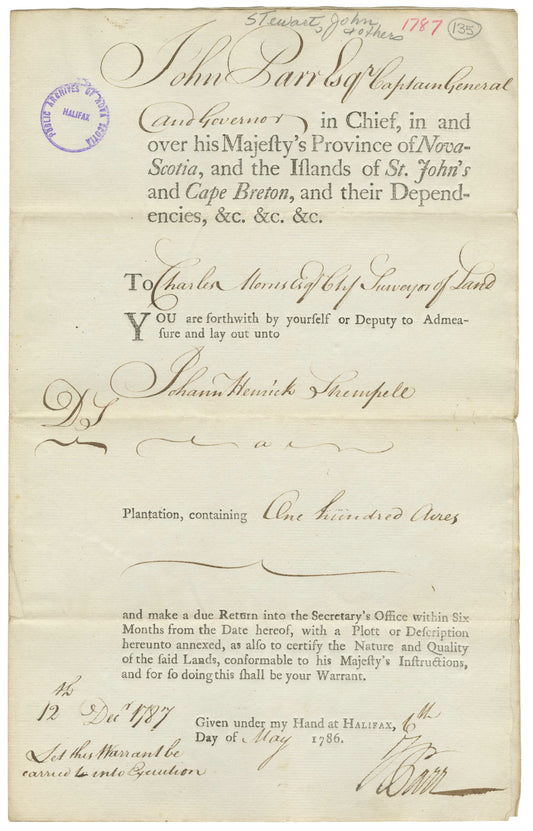 Stewart, John
& others
1787
135
PUBLIC ARCHIVES OF NOVA SCOTIA
HALIFAX
John Parr Esqr Captain General
and Governor in Chief, in and
over his Majeſty's Province of Nova-
Scotia, and the Iſlands of St. John's
and Cape Breton, and their Depend-
encies, &c. &c. &c.
To Charles Morris Esqr Chf Surveyor of Land
YOU are forthwith by yourſelf or Deputy to Admea-
ſure and lay out unto
Johann Henrick Strempell
DS
a
Plantation, containing One hündred Acres
and make a due Return into the Secretary's Office within Six
Months from the Date hereof, with a Plott or Deſcription
hereunto annexed, as alſo to certify the Nature and Quality
of the ſaid Lands, conformable to his Majeſty's Inſtructions,
and for ſo doing this ſhall be your Warrant.
12th Decr 1787
Let this Warrant be
carried into Execution
Given under my Hand at HALIFAX, 6th
Day of May 1786.
J Parr